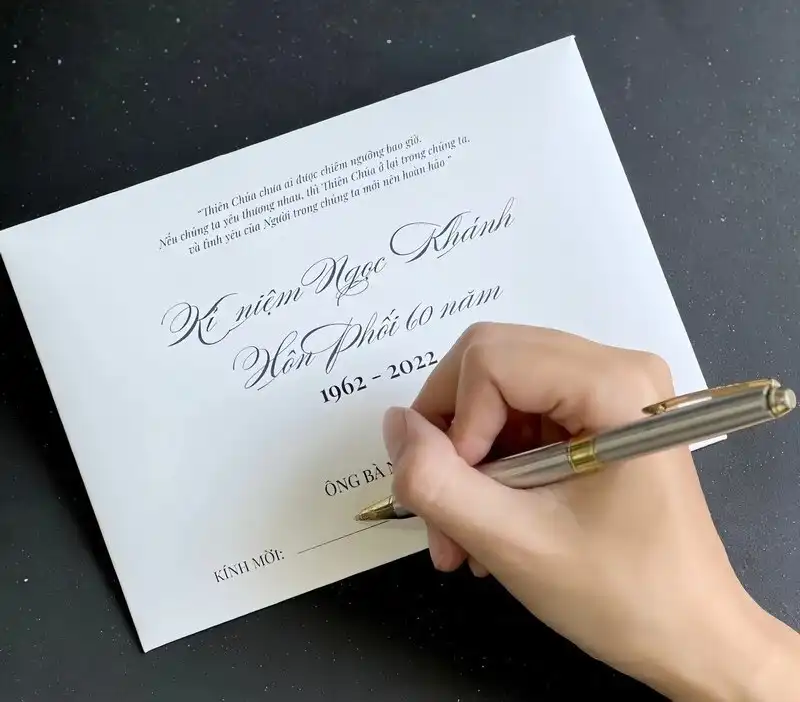 "Thiên Chúa chưa ai được chiêm ngưỡng bao giờ.
Nếu chúng ta yêu thương nhau, thì Thiên Chúa ở lại trong chúng ta,
và tình yêu của Người trong chúng ta mới nên hoàn hảo "
Kỉ niệm Ngọc Khánh
Hôn Phối 60 năm
1962 - 2022
ÔNG BÀ
KÍNH MỜI: